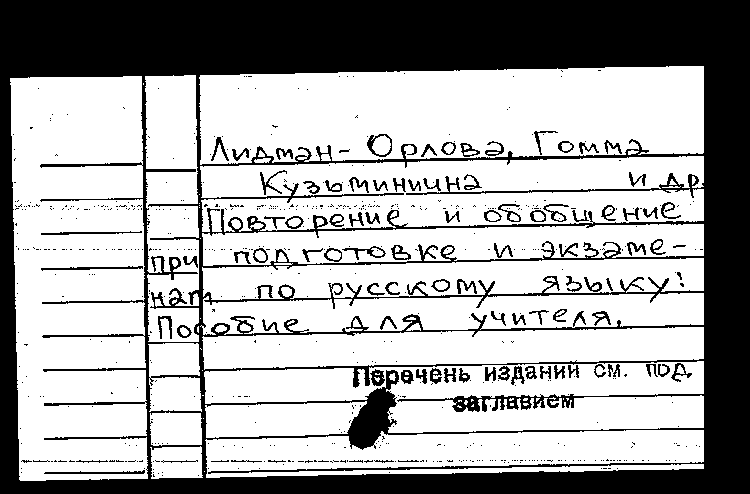 Лидман-Орлова, Гомма
Кузьминична и др.
Повторение и обобщение
при подготовке и экзаме-
нам по русскому языку:
Пособие для учителя.
Перечень изданий см. под
заглавием